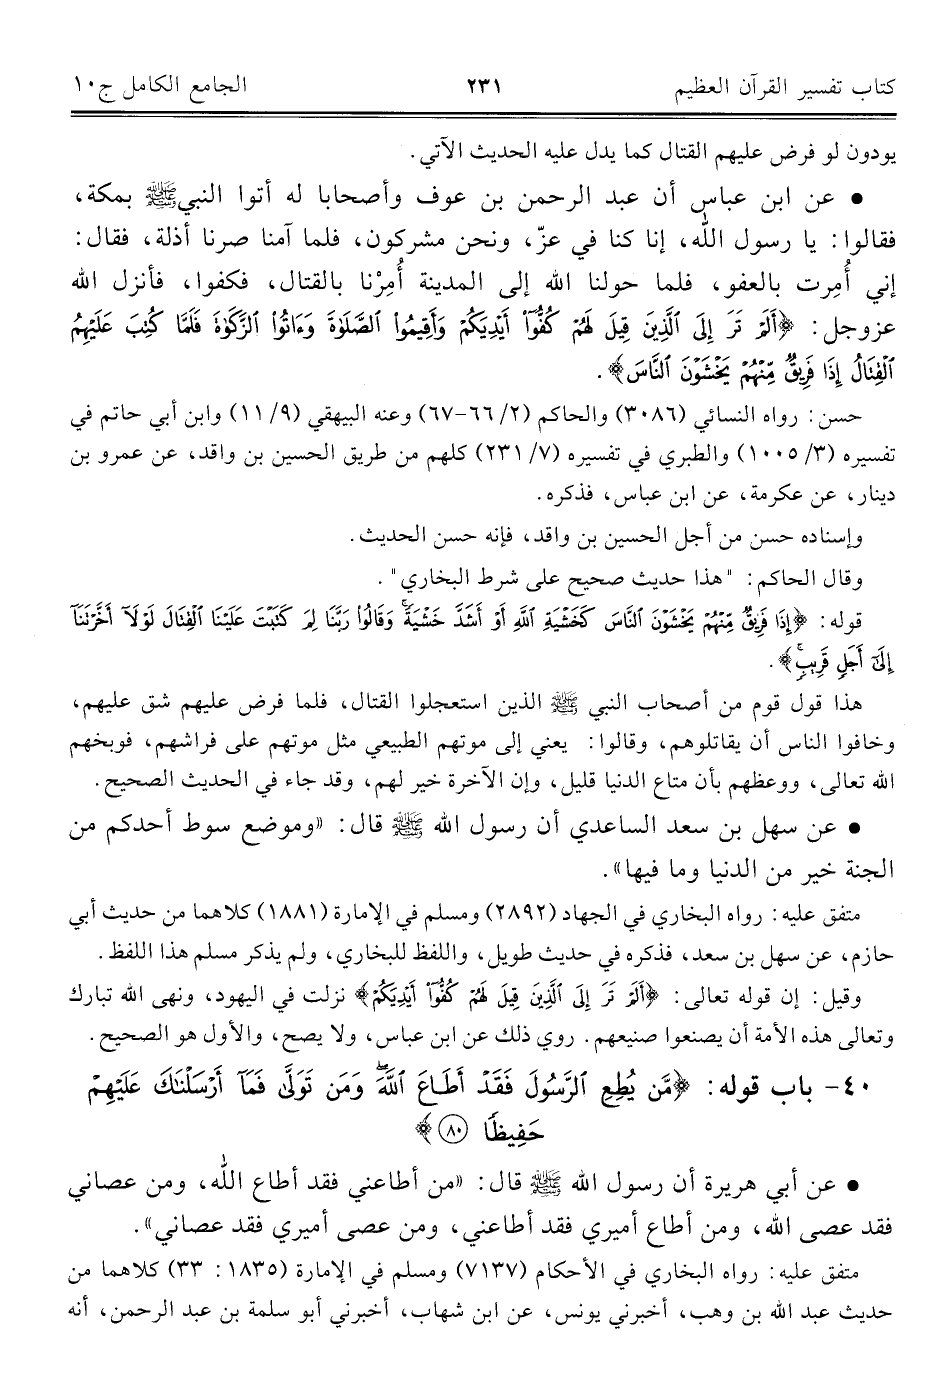 كتاب تفسير القرآن العظيم ٢٣١ الجامع الكامل ج١٠
يودون لو فرض عليهم القتال كما يدل عليه الحديث الآتي.
• عن ابن عباس أن عبد الرحمن بن عوف وأصحابا له أتوا النبي ﷺ بمكة،
فقالوا: يا رسول الله، إنا كنا في عزّ، ونحن مشركون، فلما آمنا صرنا أذلة، فقال:
إني أُمِرت بالعفو، فلما حولنا الله إلى المدينة أُمِرْنا بالقتال، فكفوا، فأنزل الله
عزوجل: ﴿أَلَمْ تَرَ إِلَى ٱلَّذِينَ قِيلَ لَهُمْ كُفُّوٓا۟ أَيْدِيَكُمْ وَأَقِيمُوا۟ ٱلصَّلَوٰةَ وَءَاتُوا۟ ٱلزَّكَوٰةَ فَلَمَّا كُتِبَ عَلَيْهِمُ
ٱلْقِتَالُ إِذَا فَرِيقٌ مِّنْهُمْ يَخْشَوْنَ ٱلنَّاسَ﴾.
حسن: رواه النسائي (٣٠٨٦) والحاكم (٢/ ٦٦-٦٧) وعنه البيهقي (٩/ ١١) وابن أبي حاتم في
تفسيره (٣/ ١٠٠٥) والطبري في تفسيره (٧/ ٢٣١) كلهم من طريق الحسين بن واقد، عن عمرو بن
دينار، عن عكرمة، عن ابن عباس، فذكره.
وإسناده حسن من أجل الحسين بن واقد، فإنه حسن الحديث.
وقال الحاكم: "هذا حديث صحيح على شرط البخاري".
قوله: ﴿إِذَا فَرِيقٌ مِّنْهُمْ يَخْشَوْنَ ٱلنَّاسَ كَخَشْيَةِ ٱللَّهِ أَوْ أَشَدَّ خَشْيَةً ۚ وَقَالُوا۟ رَبَّنَا لِمَ كَتَبْتَ عَلَيْنَا ٱلْقِتَالَ لَوْلَآ أَخَّرْتَنَآ
إِلَىٰٓ أَجَلٍ قَرِيبٍ ۗ﴾.
هذا قول قوم من أصحاب النبي ﷺ الذين استعجلوا القتال، فلما فرض عليهم شق عليهم،
وخافوا الناس أن يقاتلوهم، وقالوا: يعني إلى موتهم الطبيعي مثل موتهم على فراشهم، فوبخهم
الله تعالى، ووعظهم بأن متاع الدنيا قليل، وإن الآخرة خير لهم، وقد جاء في الحديث الصحيح.
• عن سهل بن سعد الساعدي أن رسول الله ﷺ قال: «وموضع سوط أحدكم من
الجنة خير من الدنيا وما فيها».
متفق عليه: رواه البخاري في الجهاد (٢٨٩٢) ومسلم في الإمارة (١٨٨١) كلاهما من حديث أبي
حازم، عن سهل بن سعد، فذكره في حديث طويل، واللفظ للبخاري، ولم يذكر مسلم هذا اللفظ.
وقيل: إن قوله تعالى: ﴿أَلَمْ تَرَ إِلَى ٱلَّذِينَ قِيلَ لَهُمْ كُفُّوٓا۟ أَيْدِيَكُمْ﴾ نزلت في اليهود، ونهى الله تبارك
وتعالى هذه الأمة أن يصنعوا صنيعهم. روي ذلك عن ابن عباس، ولا يصح، والأول هو الصحيح.
٤٠- باب قوله: ﴿مَّن يُطِعِ ٱلرَّسُولَ فَقَدْ أَطَاعَ ٱللَّهَ ۖ وَمَن تَوَلَّىٰ فَمَآ أَرْسَلْنَـٰكَ عَلَيْهِمْ
حَفِيظًا ٨٠﴾
• عن أبي هريرة أن رسول الله ﷺ قال: «من أطاعني فقد أطاع الله، ومن عصاني
فقد عصى الله، ومن أطاع أميري فقد أطاعني، ومن عصى أميري فقد عصاني».
متفق عليه: رواه البخاري في الأحكام (٧١٣٧) ومسلم في الإمارة (١٨٣٥: ٣٣) كلاهما من
حديث عبد الله بن وهب، أخبرني يونس، عن ابن شهاب، أخبرني أبو سلمة بن عبد الرحمن، أنه